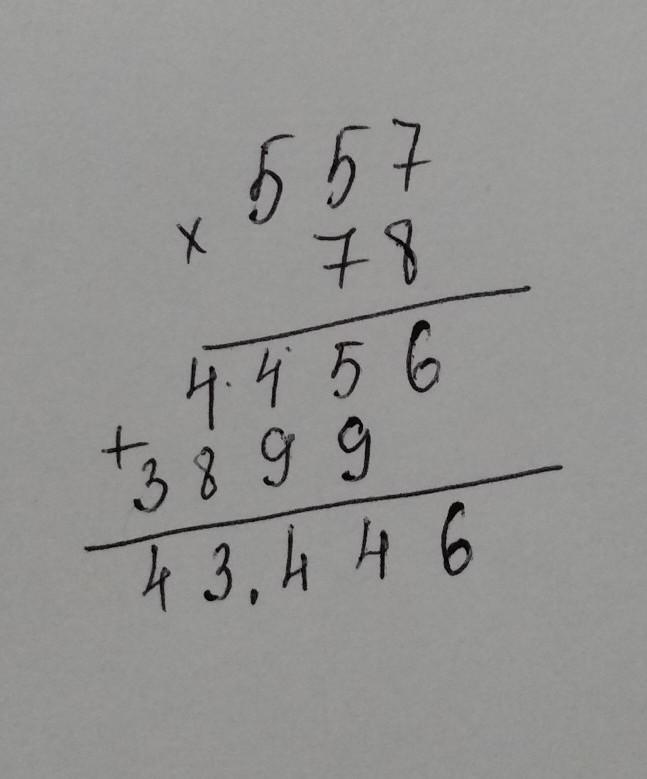 557
× 78
4.456
+3899
43.446